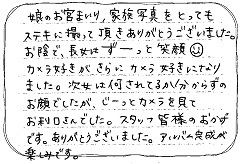 娘のお宮まいり、家族写真をとっても
ステキに撮って頂きありがとうございました。
お陰で、長女はずーーっと笑顔☺
カメラ好きがさらにカメラ好きになり
ました。次女は何されてるか分からずの
お顔でしたが、じーっとカメラを見て
お利口さんでした。スタッフ皆様のおかげ
です。ありがとうございました。アルバム完成が
楽しみです。